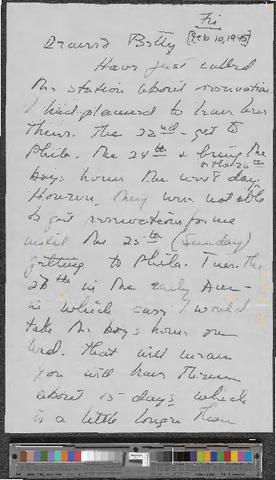 Fri
[Feb 10, 1945]
Dearest Betty
Have just called
the station about reservations.
I had planned to leave here
Thurs. the 22nd - get to
Phila. the 24th & bring the
boys home the next day.
However, they were not able
to get reservations for me
until the 25th (Sunday)
getting to Phila. Tues. the
28th in the early
in which case I would
take the boys home on
Wed. That will mean
you will have them
about 15 days which
is a little longer than